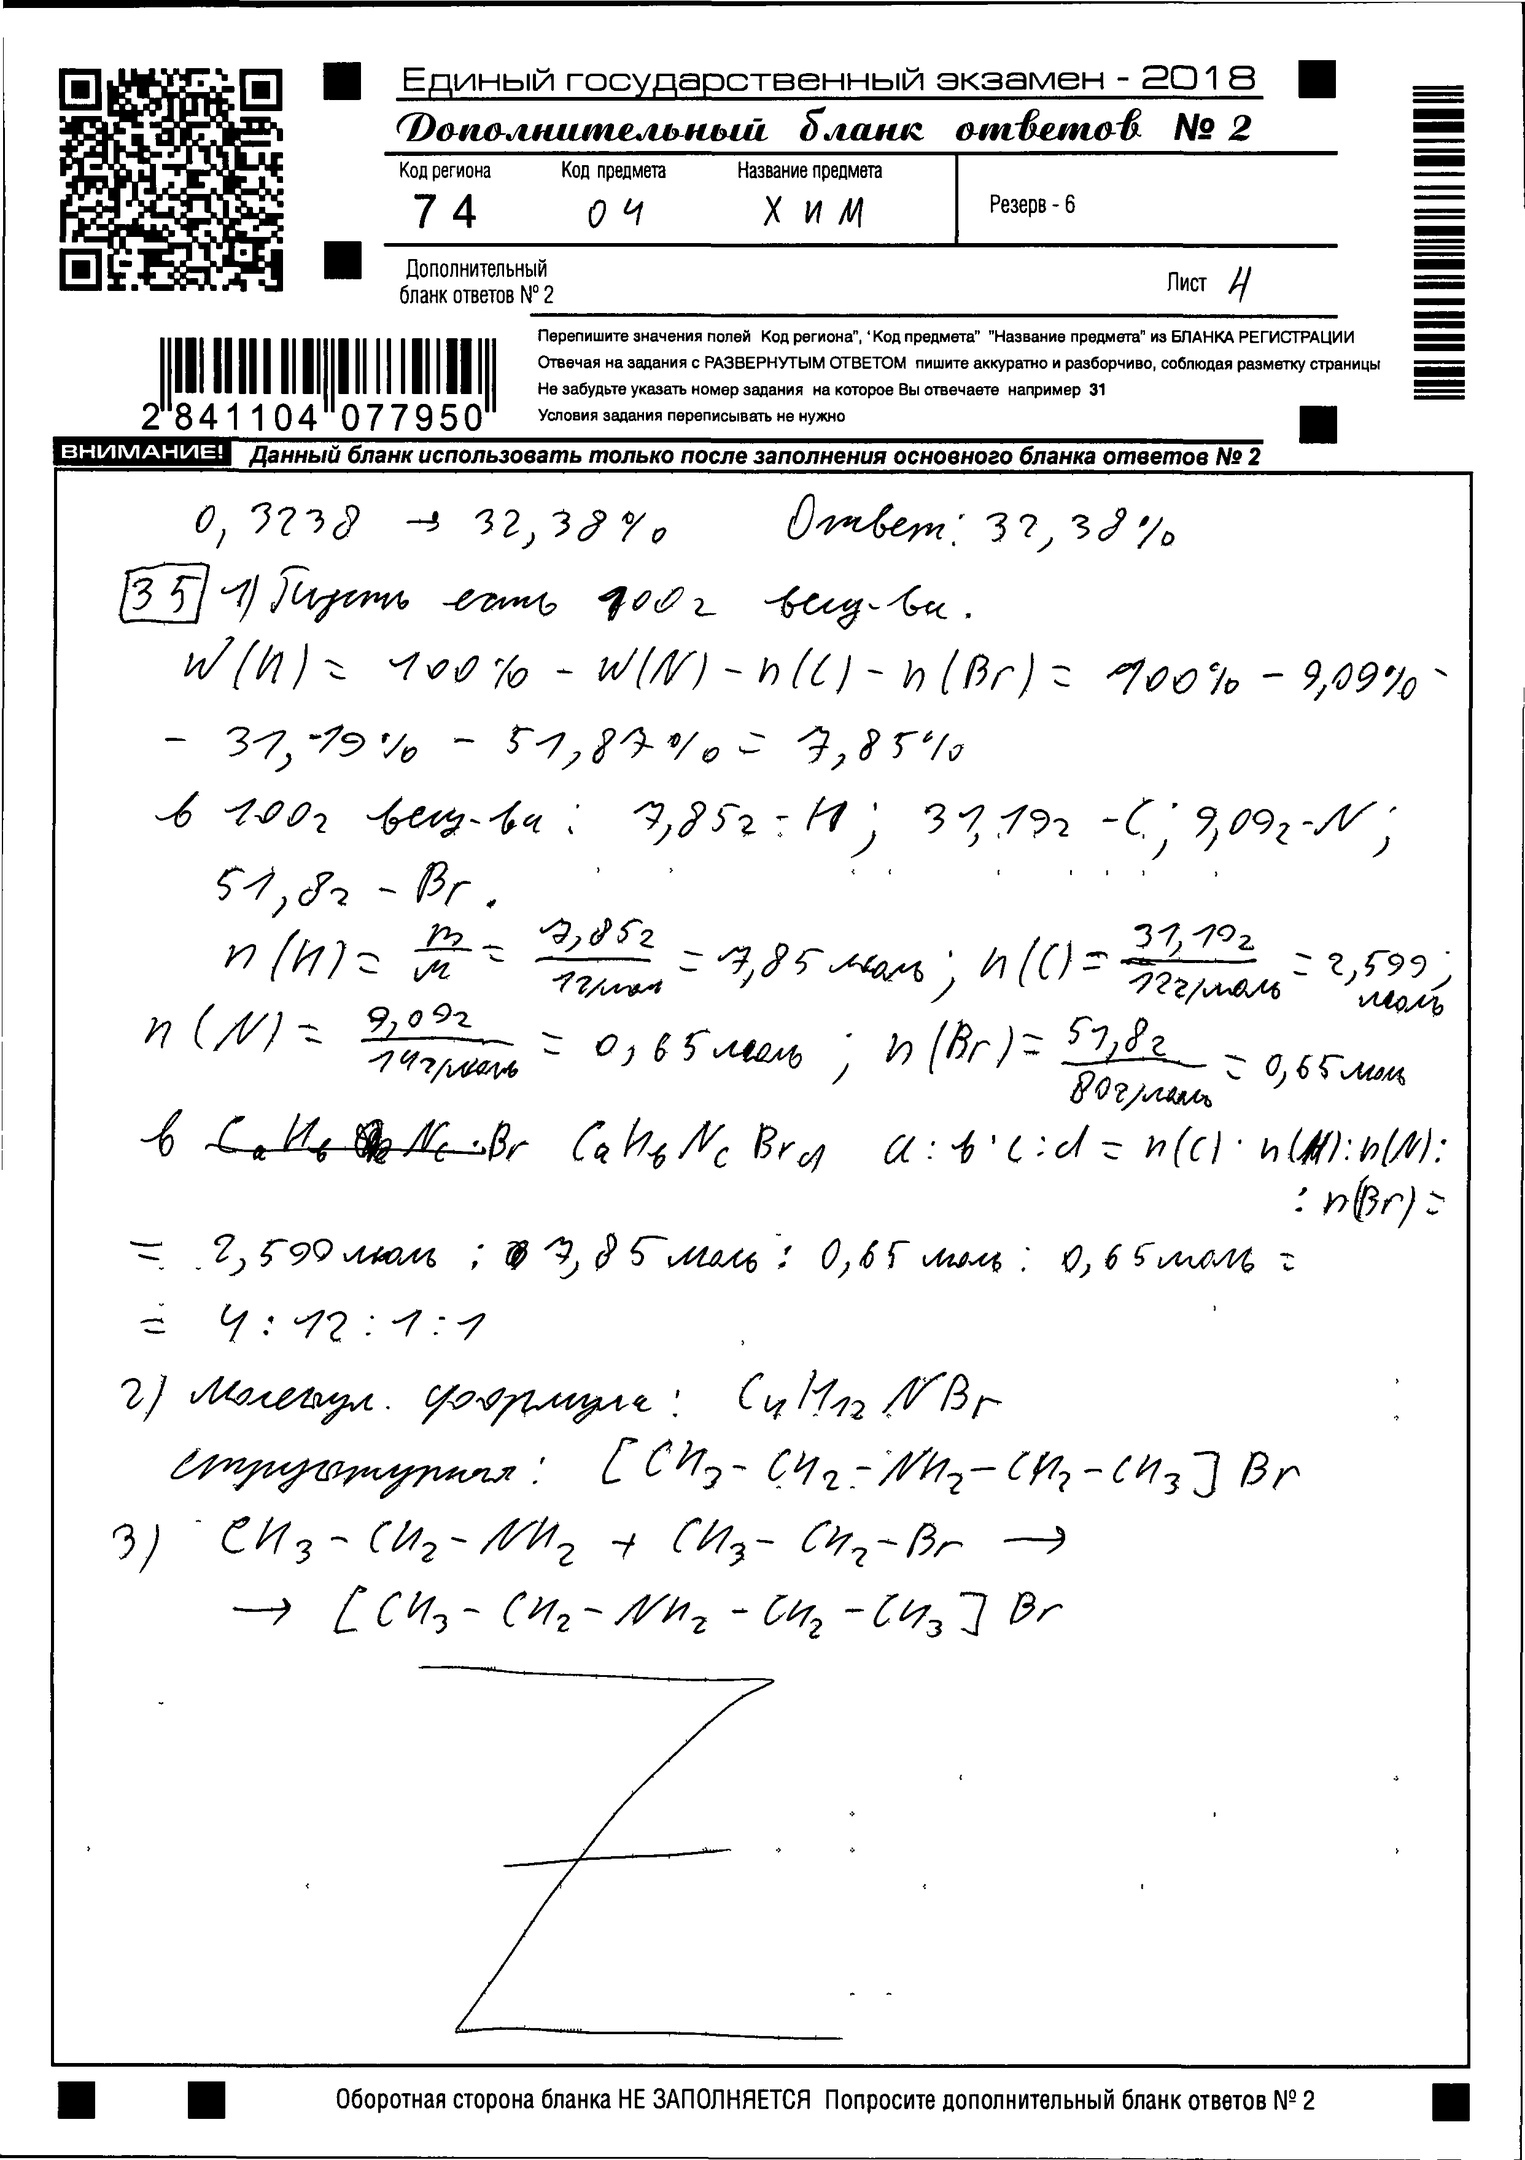 Единый государственный экзамен - 2018
Дополнительный бланк ответов № 2
Код региона Код предмета Название предмета
74 04 ХИМ Резерв - 6
Дополнительный
бланк ответов № 2
Лист 4
Перепишите значения полей Код региона", "Код предмета" "Название предмета" из БЛАНКА РЕГИСТРАЦИИ
Отвечая на задания с РАЗВЕРНУТЫМ ОТВЕТОМ пишите аккуратно и разборчиво, соблюдая разметку страницы
Не забудьте указать номер задания на которое Вы отвечаете например 31
Условия задания переписывать не нужно
2 841104 077950
ВНИМАНИЕ! Данный бланк использовать только после заполнения основного бланка ответов № 2
0,3238 → 32,38% Ответ: 32,38%
35 1) Пусть есть 100г вещ-ва.
W(H) = 100% - W(N) - n(C) - n(Br) = 100% - 9,09% -
- 31,19% - 51,87% = 7,85%
в 100г вещ-ва: 7,85г - H; 31,19г - C; 9,09г - N;
51,8г - Br.
n(H) = m/M = 7,85г/1г/мол = 7,85 моль; n(C) = 31,19г/12г/моль = 2,599 моль;
n(N) = 9,09г/14г/моль = 0,65 моль; n(Br) = 51,8г/80г/моль = 0,65 моль
в CaHbNcBrd a:b:c:d = n(C):n(H):n(N):
:n(Br) =
= 2,599 моль : 7,85 моль : 0,65 моль : 0,65 моль =
= 4:12:1:1
2) Молекул. формула: C₄H₁₂NBr
структурная: [CH₃-CH₂-NH₂-CH₂-CH₃]Br
3) CH₃-CH₂-NH₂ + CH₃-CH₂-Br →
→ [CH₃-CH₂-NH₂-CH₂-CH₃]Br
Оборотная сторона бланка НЕ ЗАПОЛНЯЕТСЯ Попросите дополнительный бланк ответов № 2